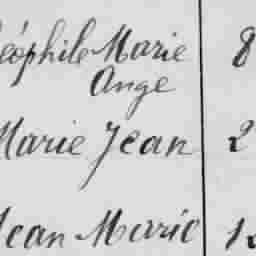 éophile Marie 8
Ange
Marie Jean 2
Jean Marie 12